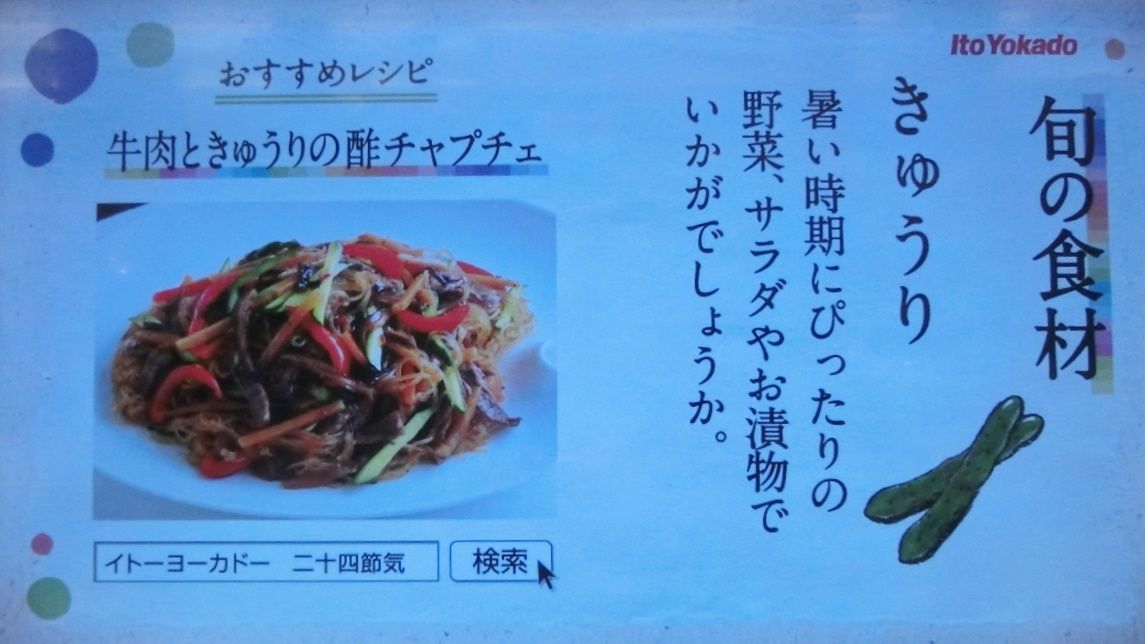 Ito Yokado
旬の食材
きゅうり
暑い時期にぴったりの
野菜、サラダやお漬物で
いかがでしょうか。
おすすめレシピ
牛肉ときゅうりの酢チャプチェ
イトーヨーカドー 二十四節気
検索